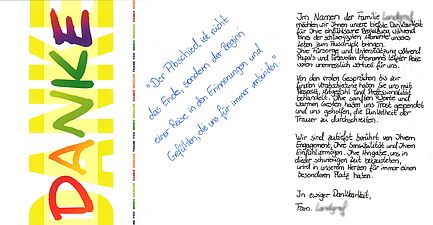 DANKE
DANKE
"Der Abschied ist nicht
das Ende, sondern der Beginn
einer Reise in den Erinnerungen und
Gefühlen, die uns für immer verbinden."
Im Namen der Familie
möchten wir Ihnen unsere tiefste Dankbarkeit
für Ihre einfühlsame Begleitung während
eines der schwierigsten Momente unseres
Lebens zum Ausdruck bringen.
Ihre Fürsorge und Unterstützung während
Papa's und liebevollen Ehemanns letzter Reise
waren unermesslich wertvoll für uns.
Von den ersten Gesprächen bis zur
finalen Verabschiedung haben Sie uns mit
Respekt, Mitgefühl und Professionalität
behandelt. Ihre sanften Worte und
warmen Gesten haben uns Trost gespendet
und uns geholfen, die Dunkelheit der
Trauer zu durchschreiten.
Wir sind zutiefst berührt von Ihrem
Engagement, Ihre Sensibilität und Ihrem
Einfühlvermögen. Ihre Hingabe, uns in
dieser schwierigen Zeit beizustehen,
wird in unseren Herzen für immer einen
besonderen Platz haben.
In ewiger Dankbarkeit,
Fam.